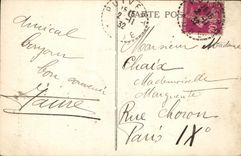 CARTE POSTALE
Amical
bonjour
bon souvenir
Faure
Monsieur Madame
Chaix
Mademoiselle
Marguerite
Rue Choron
Paris IXe